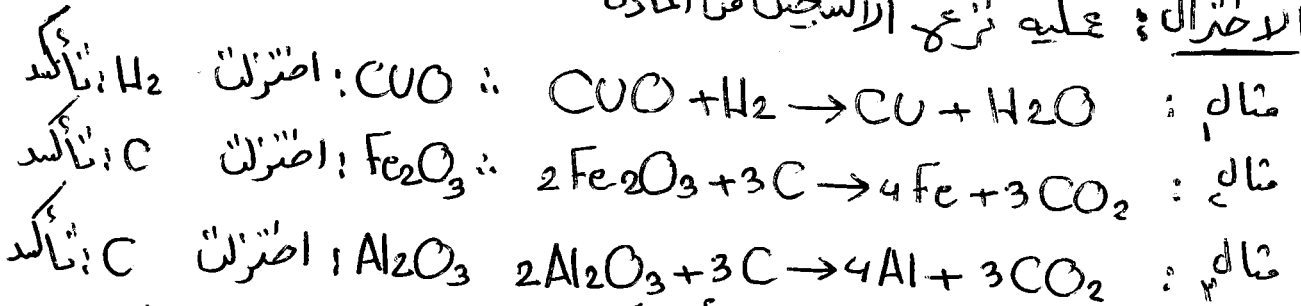 الاختزال: عملية نزع الأكسجين من المادة
مثال١: CuO + H2 → Cu + H2O ∴ CuO: اختزلت H2: تأكسد
مثال٢: 2Fe2O3 + 3C → 4Fe + 3CO2 ∴ Fe2O3: اختزلت C: تأكسد
مثال٣: 2Al2O3 + 3C → 4Al + 3CO2 Al2O3: اختزلت C: تأكسد